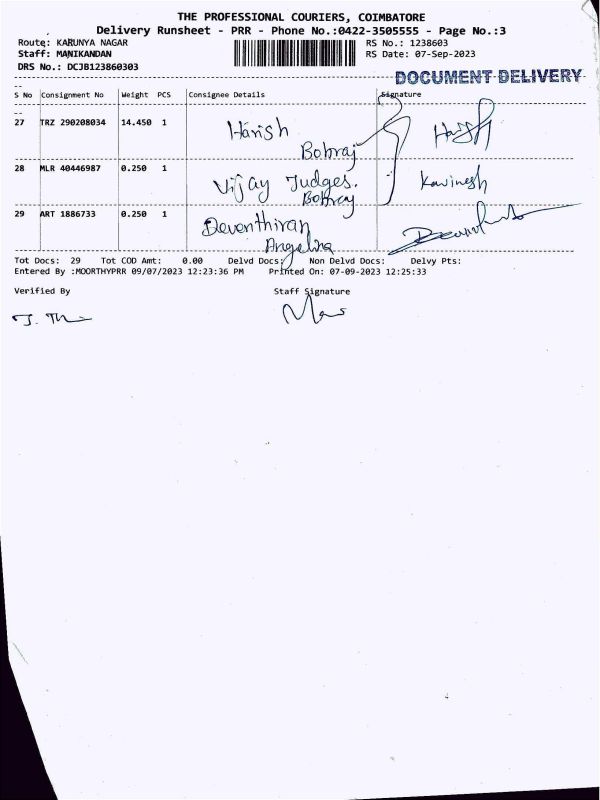 THE PROFESSIONAL COURIERS, COIMBATORE
Delivery Runsheet - PRR - Phone No.:0422-3505555 - Page No.:3
Route: KARUNYA NAGAR
RS No.: 1238603
Staff: MANIKANDAN
RS Date: 07-Sep-2023
DRS No.: DCJB123860303
DOCUMENT DELIVERY
S No Consignment No Weight PCS Consignee Details Signature
27 TRZ 290208034 14.450 1 Harish
Bobraj
28 MLR 40446987 0.250 1 Vijay Judges. Kavinesh
Bobraj
29 ART 1886733 0.250 1 Deventhiran
Angelina
Tot Docs: 29 Tot COD Amt: 0.00 Delvd Docs: Non Delvd Docs: Delvy Pts:
Entered By :MOORTHYPRR 09/07/2023 12:23:36 PM Printed On: 07-09-2023 12:25:33
Verified By Staff Signature